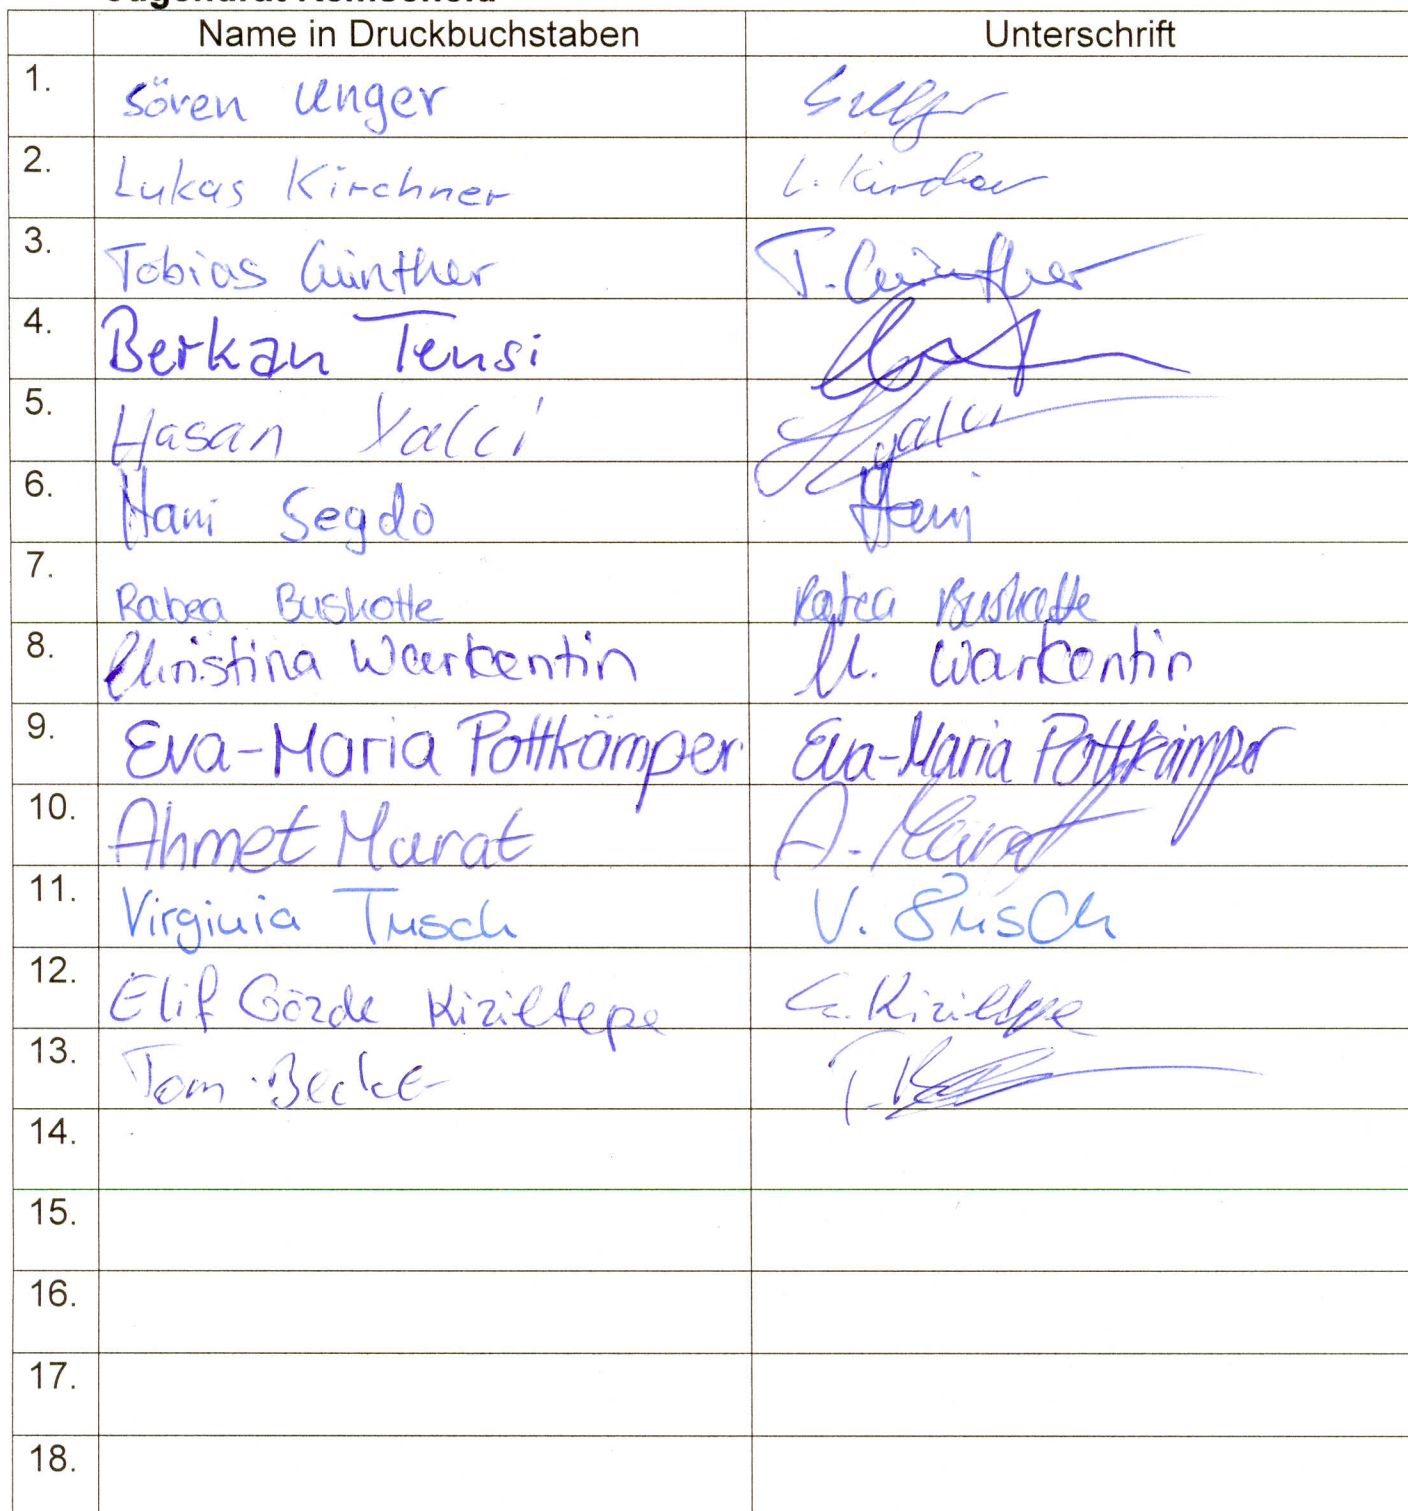 Jugendrat Remscheid
Name in Druckbuchstaben Unterschrift
1. Sören Unger
2. Lukas Kirchner L. Kirchner
3. Tobias Günther T. Günther
4. Berkan Tensi
5. Hasan Yalci H Yalci
6. Hani Segdo Hani
7. Rabea Buskotte Rabea Buskotte
8. Christina Warkentin Ch. Warkentin
9. Eva-Maria Pottkämper Eva-Maria Pottkämper
10. Ahmet Murat A. Murat
11. Virginia Tusch V. Tusch
12. Elif Gözde Kiziltepe G. Kiziltepe
13. Tom Becker
14.
15.
16.
17.
18.